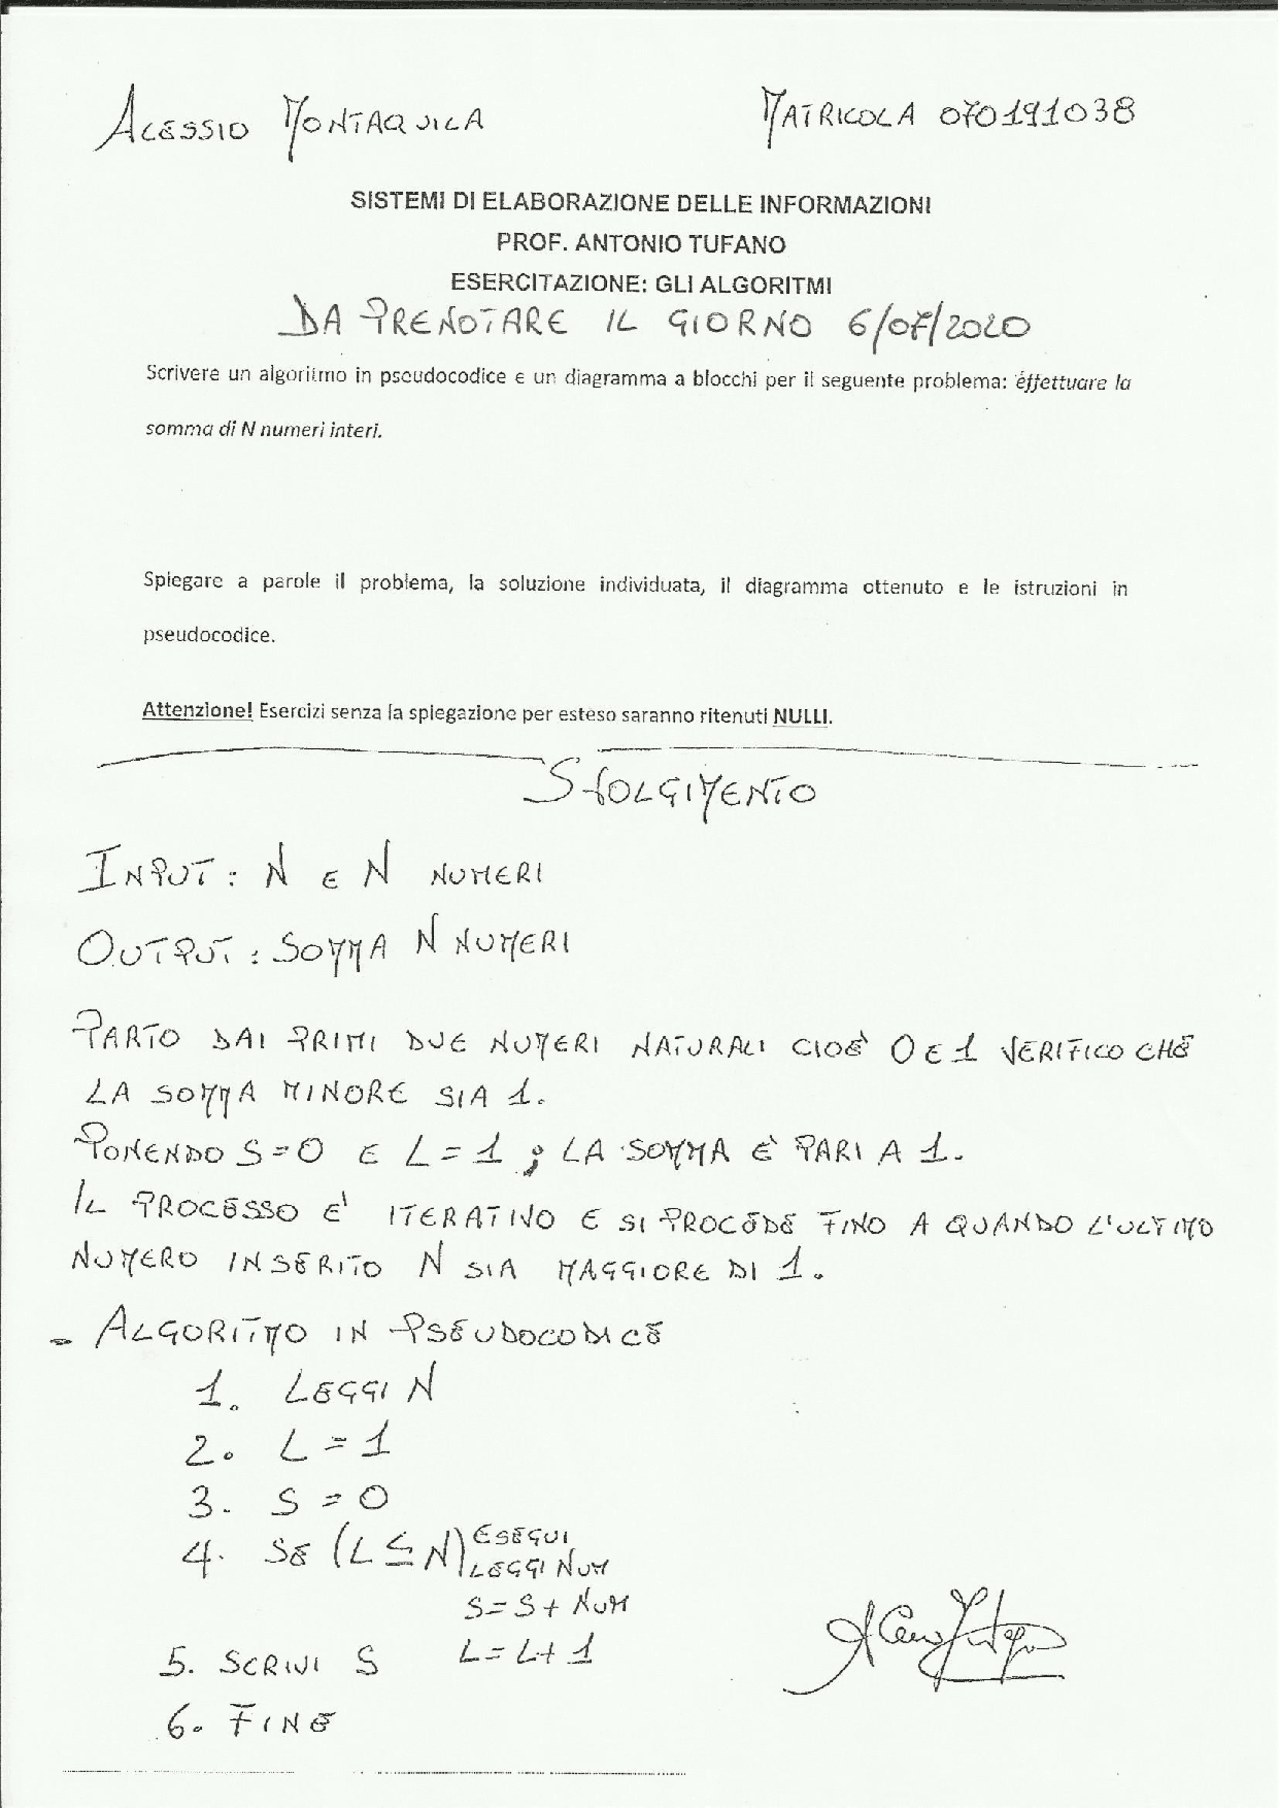 ALESSIO MONTAQUILA
MATRICOLA 070191038
SISTEMI DI ELABORAZIONE DELLE INFORMAZIONI
PROF. ANTONIO TUFANO
ESERCITAZIONE: GLI ALGORITMI
DA PRENOTARE IL GIORNO 6/07/2020
Scrivere un algoritmo in pseudocodice e un diagramma a blocchi per il seguente problema: effettuare la
somma di N numeri interi.
Spiegare a parole il problema, la soluzione individuata, il diagramma ottenuto e le istruzioni in
pseudocodice.
Attenzione! Esercizi senza la spiegazione per esteso saranno ritenuti NULLI.
SVOLGIMENTO
INPUT: N E N NUMERI
OUTPUT: SOMMA N NUMERI
PARTO DAI PRIMI DUE NUMERI NATURALI CIOÈ 0 E 1 VERIFICO CHE
LA SOMMA MINORE SIA 1.
PONENDO S=0 E L=1; LA SOMMA È PARI A 1.
IL PROCESSO E' ITERATIVO E SI PROCEDE FINO A QUANDO L'ULTIMO
NUMERO INSERITO N SIA MAGGIORE DI 1.
- ALGORITMO IN PSEUDOCODICE
1. LEGGI N
2. L = 1
3. S = 0
4. SE (L ≤ N) ESEGUI
LEGGI NUM
S = S + NUM
L = L + 1
5. SCRIVI S
6. FINE